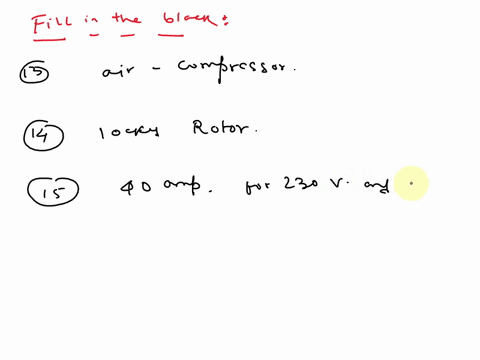 Fill in the black:
13 air - compressor.
14 locky Rotor.
15 40 amp. for 230 V. and